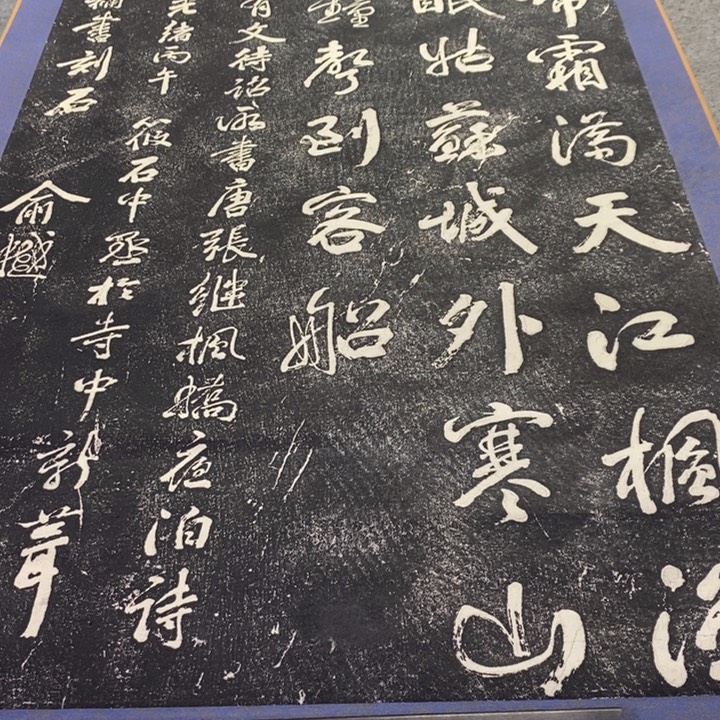 霜滿天江楓
眠姑蘇城外寒山
鐘聲到客船
有文待詔所書唐張繼楓橋夜泊詩
光緒丙午筱石中丞於寺中新葺
補書刻石
俞樾